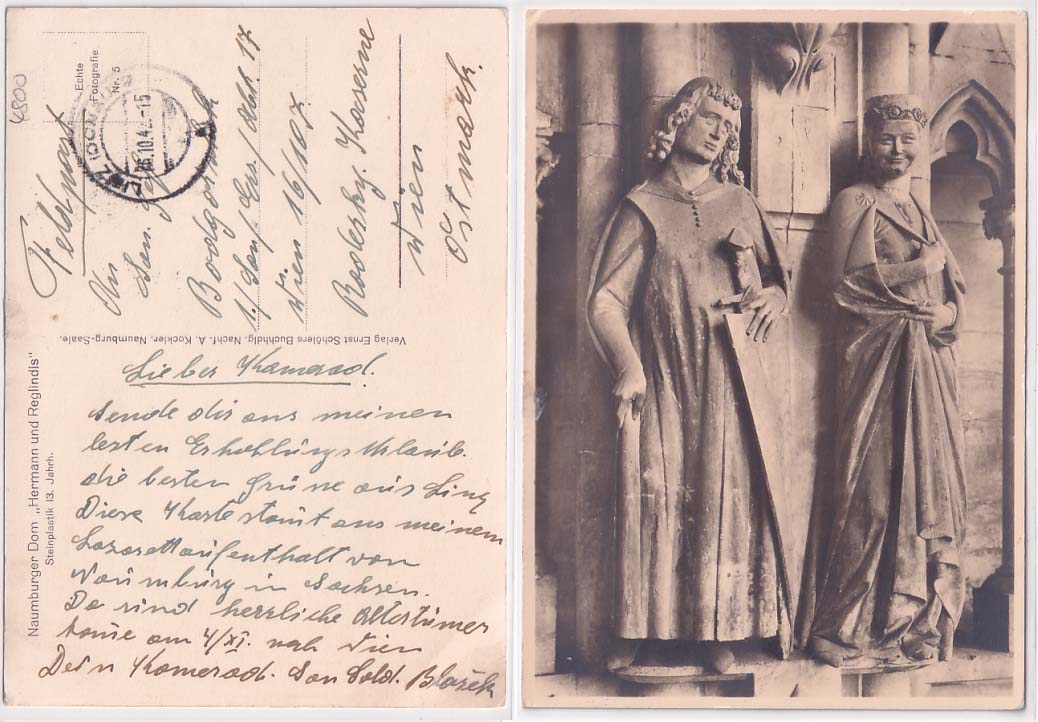 4800
Echte
Fotografie
Nr. 5
26.10.42.-15
Feldpost
An
San. Gefr.
1./San/Ers/Abt. 17
Wien 16/107.
Kaserne
Wien
Ostmark.
Verlag Ernst Schölers Buchhdlg. Nachf. A. Kockler. Naumburg-Saale.
Naumburger Dom „Hermann und Reglindis"
Steinplastik 13. Jahrh.
Lieber Kamerad!
Sende dir aus meinen
lesten Erhohlüngsürlaüb.
die besten Grüße aüs Linz
Diese Karte stamt aus meinem
Lazarettaufenthalt von
Naümbürg in Sachsen.
Da sind herrliche Altertümer
kome am 4/XI. nach Wien
Dein Kamerad. San Sold. Blažek